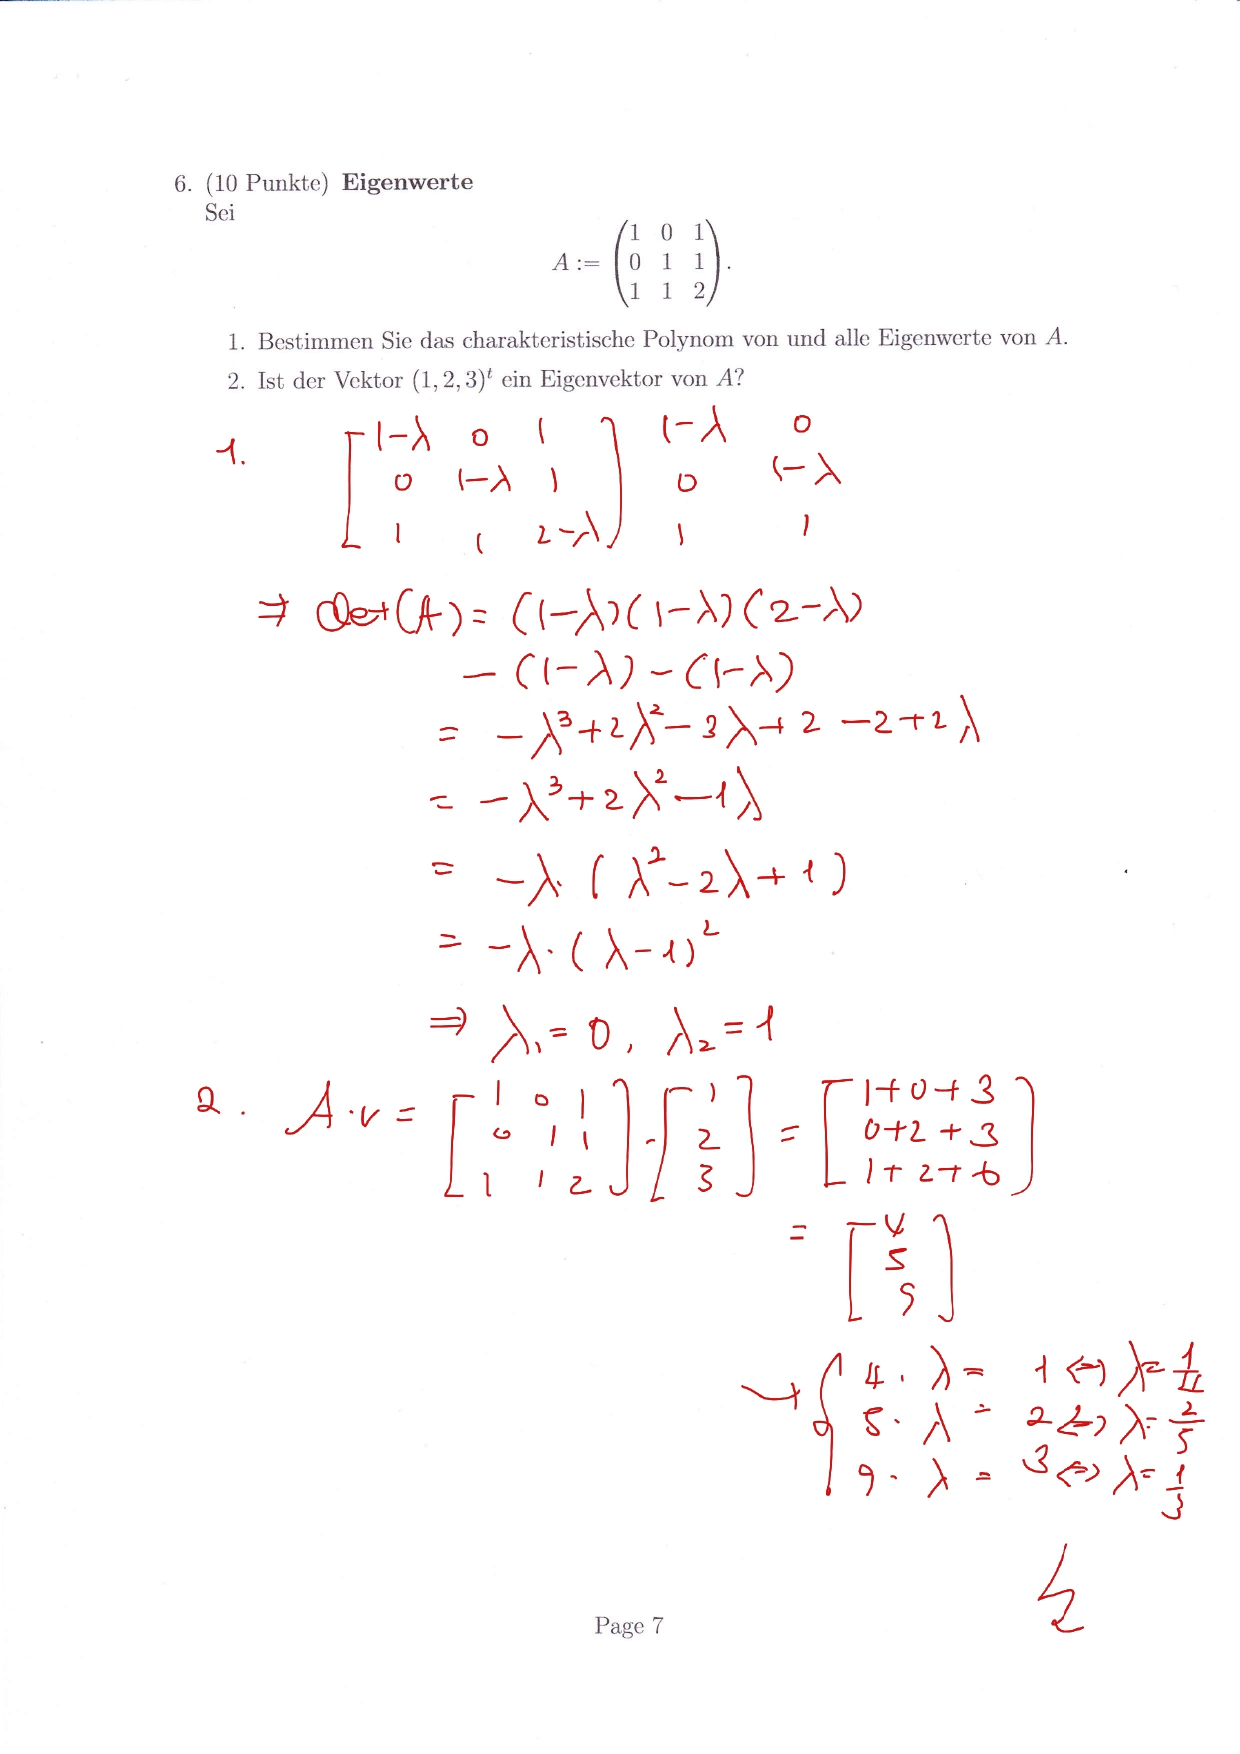 6. (10 Punkte) Eigenwerte
Sei
A := (1 0 1
0 1 1
1 1 2).
1. Bestimmen Sie das charakteristische Polynom von und alle Eigenwerte von A.
2. Ist der Vektor (1, 2, 3)^t ein Eigenvektor von A?
1. [1-λ 0 1] 1-λ 0
0 1-λ 1 0 1-λ
1 1 2-λ 1 1
⇒ det(A) = (1-λ)(1-λ)(2-λ)
- (1-λ) - (1-λ)
= -λ³+2λ²-3λ+2 -2+2λ
= -λ³+2λ²-1λ
= -λ·(λ²-2λ+1)
= -λ·(λ-1)²
⇒ λ₁=0, λ₂=1
2. A·v = [1 0 1] · [1] = [1+0+3]
0 1 1 2 0+2+3
1 1 2 3 1+2+6
= [4]
5
9
→ { 4·λ = 1 ⇔ λ=1/4
5·λ = 2 ⇔ λ=2/5
9·λ = 3 ⇔ λ=1/3
Page 7